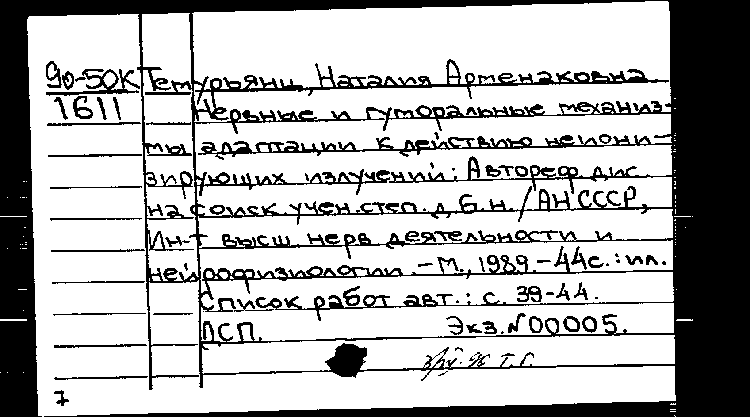 90-50К Темурьянц, Наталия Арменаковна
1611 Нервные и гуморальные механиз-
мы адаптации к действию неиони-
зирующих излучений: Автореф. дис.
на соиск. учен. степ. д. б. н. / АН СССР,
Ин-т высш. нерв. деятельности и
нейрофизиологии. - М., 1989. - 44с.: ил.
Список работ авт.: с. 39-44.
ДСП. Экз. N 00005.
Т. Г.
7